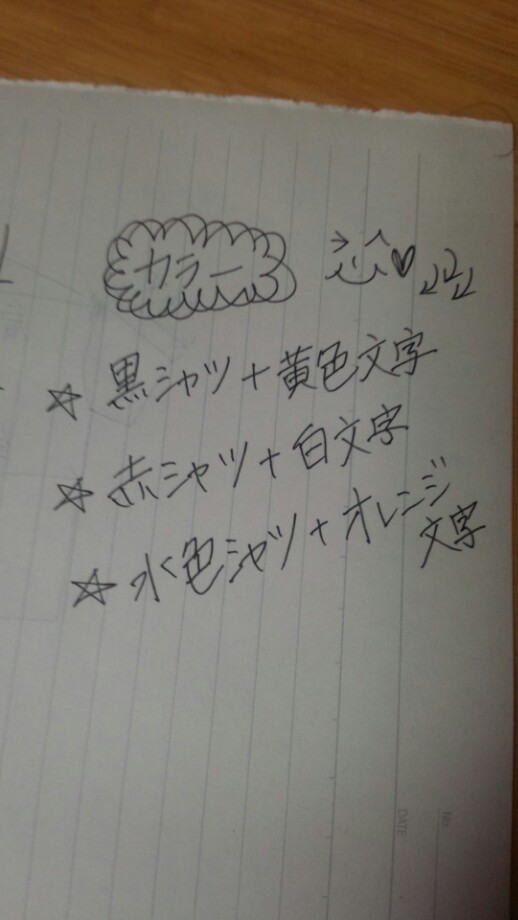 カラー
☆ 黒シャツ+黄色文字
☆ 赤シャツ+白文字
☆ 水色シャツ+オレンジ
文字
No.
DATE